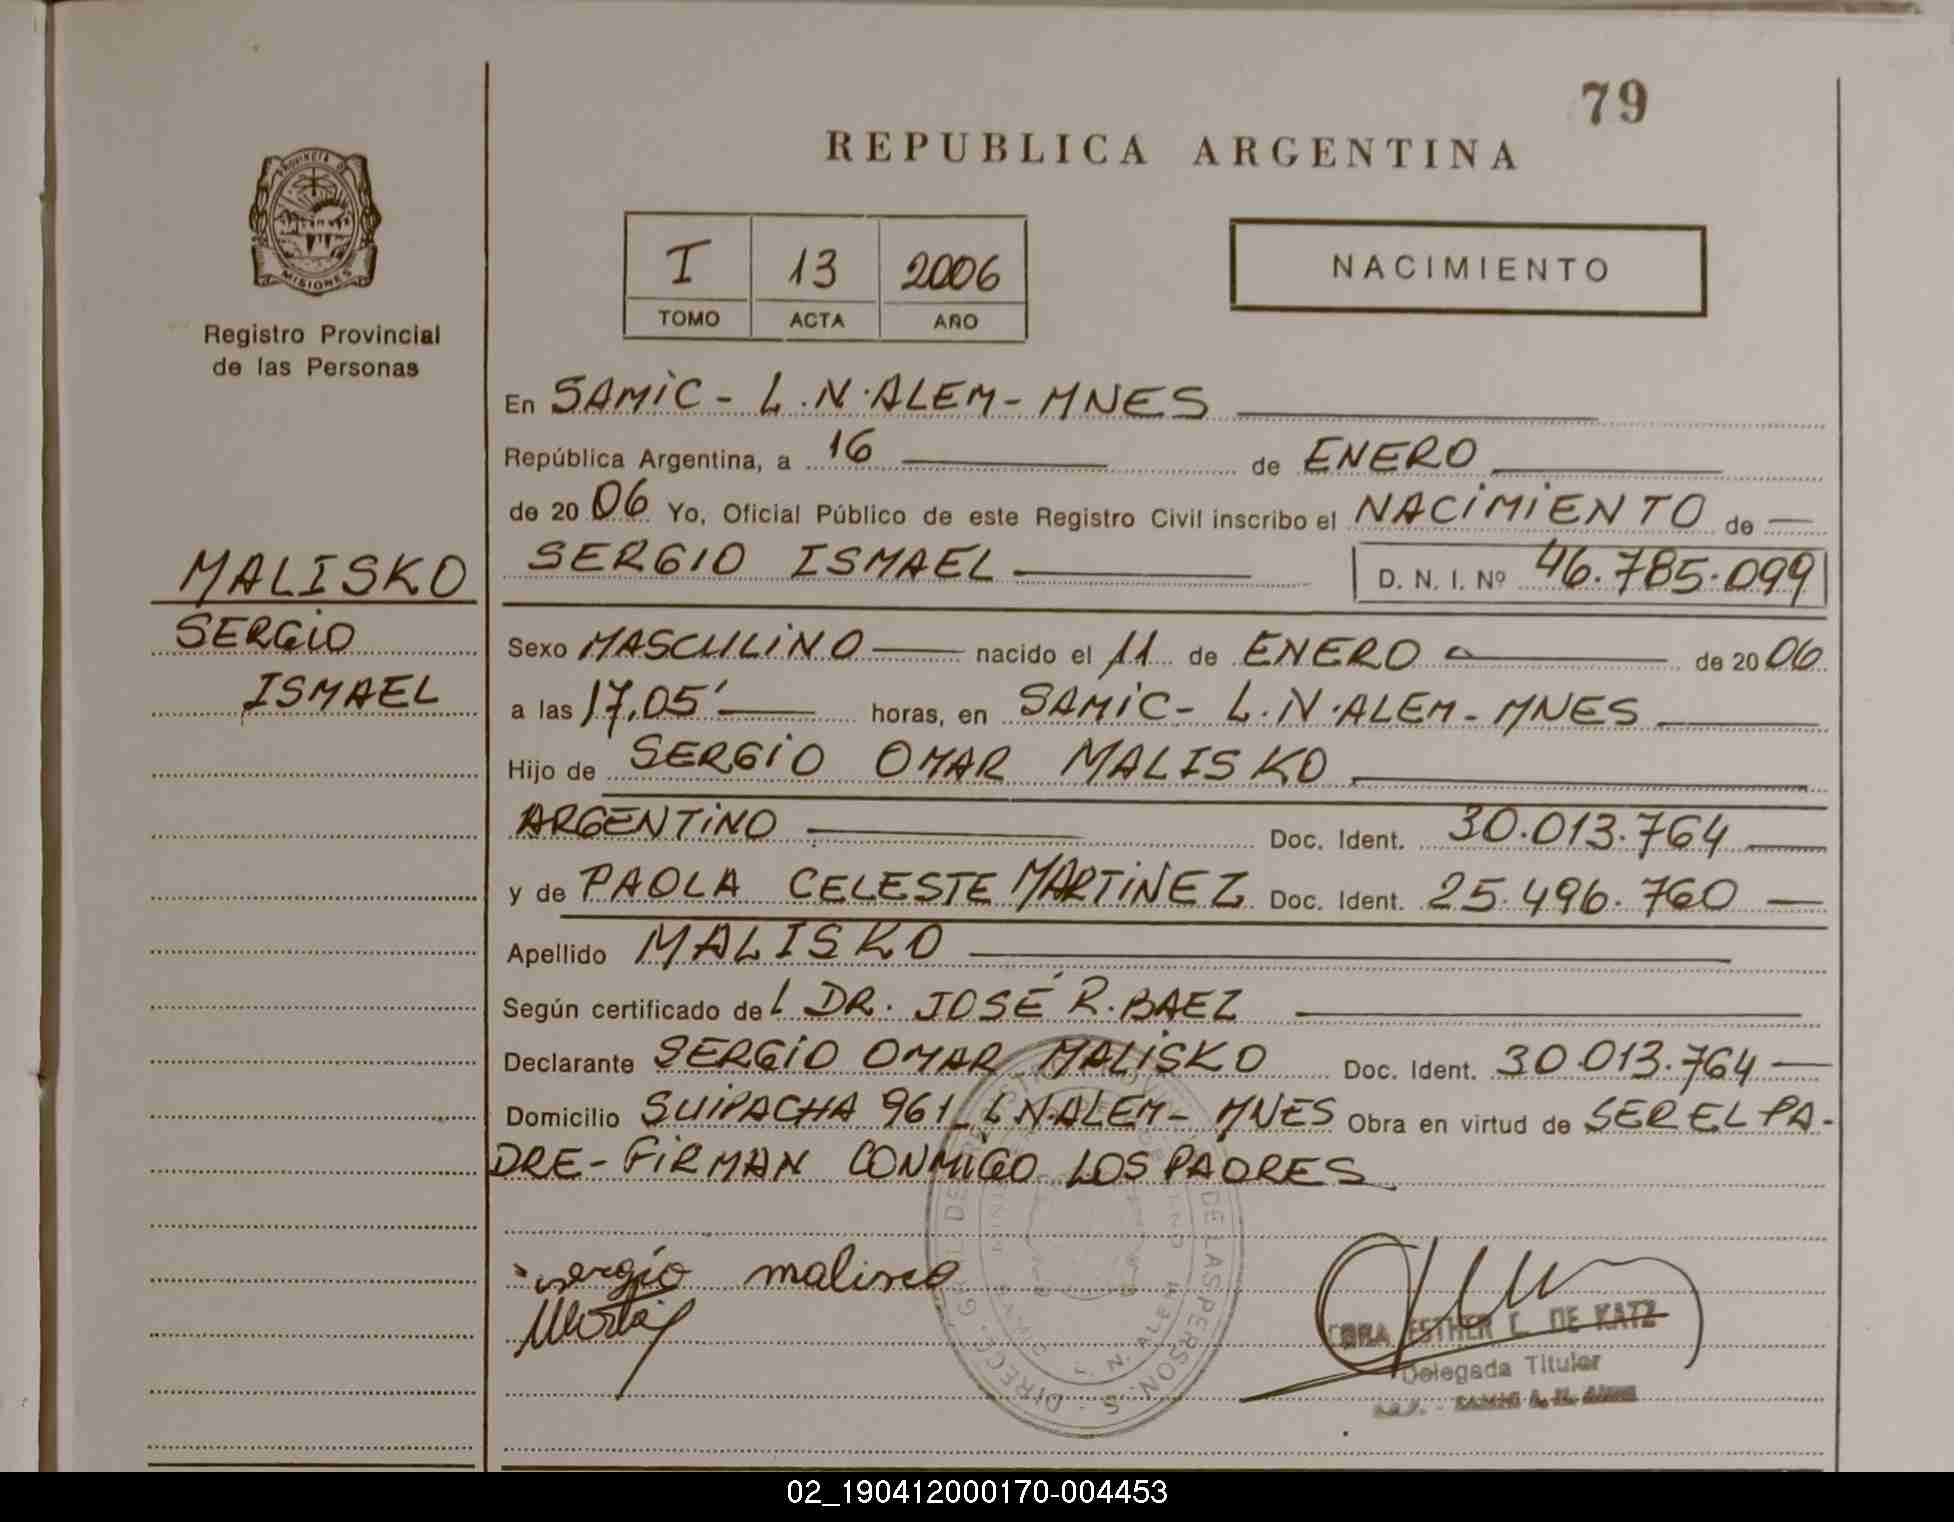 79
REPUBLICA ARGENTINA
PROVINCIA DE
MISIONES
Registro Provincial
de las Personas
I 13 2006
TOMO ACTA AÑO
NACIMIENTO
En SAMIC - L.N.ALEM - MNES
República Argentina, a 16 de ENERO
de 2006 Yo, Oficial Público de este Registro Civil inscribo el NACIMIENTO de
SERGIO ISMAEL D. N. I. Nº 46.785.099
MALISKO
SERGIO
ISMAEL
Sexo MASCULINO nacido el 11 de ENERO de 2006
a las 17,05' horas, en SAMIC - L.N.ALEM - MNES
Hijo de SERGIO OMAR MALISKO
ARGENTINO Doc. Ident. 30.013.764
y de PAOLA CELESTE MARTINEZ Doc. Ident. 25.496.760
Apellido MALISKO
Según certificado del DR. JOSÉ R. BAEZ
Declarante SERGIO OMAR MALISKO Doc. Ident. 30.013.764
Domicilio SUIPACHA 961 L.N.ALEM - MNES Obra en virtud de SER EL PA-
DRE - FIRMAN CONMIGO LOS PADRES
sergio malisco
ESTHER L. DE KATZ
Delegada Titular
DE LAS PERSON.
L. N. ALEM
02_190412000170-004453